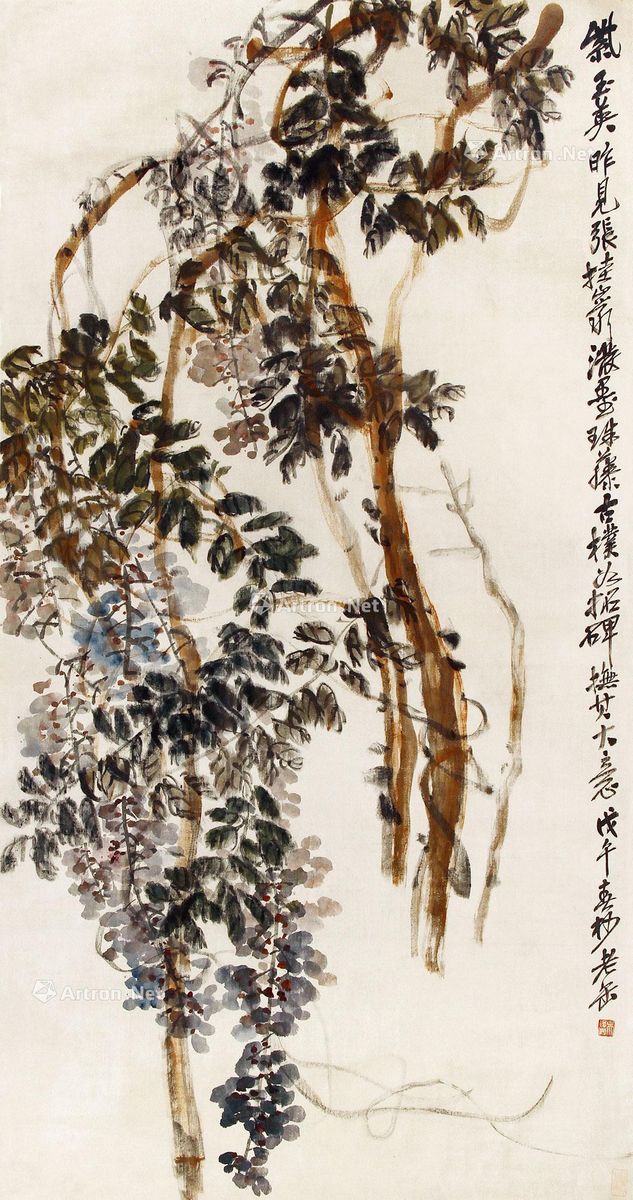 繁玉英昨見張桂巖潑墨珠藤古樸如拓碑撫其大意戊午春杪老缶
Artron.Net
Artron.Net
Artron.Net